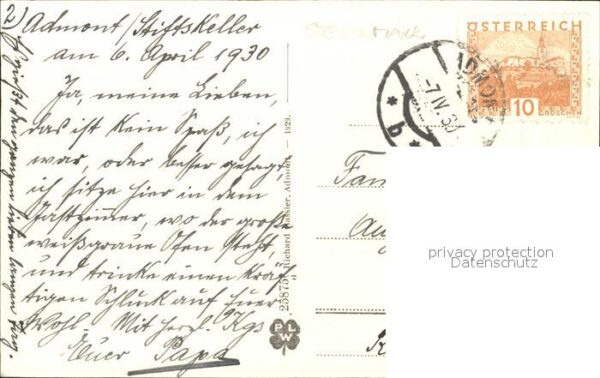 2) Admont/Stiftskeller
am 6. April 1930
Ja, meine Lieben,
das ist kein Spaß, ich
war, oder besser gesagt,
ich sitze hier in dem
Gastzimmer, wo der große
weißgraue Ofen steht,
und trinke einen kräf-
tigen Schluck auf Euer
Wohl. Mit herzl. Kgs
Euer Papa
25875 Richard Hassler, Admont — 1929.
PLW
ÖSTERREICH
10
GROSCHEN
ADMONT
-7 IV 30
* b *
Fam
Au
privacy protection
Datenschutz